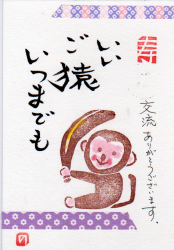 いい
ご猿
いつまでも
交流
ありがとうございます。